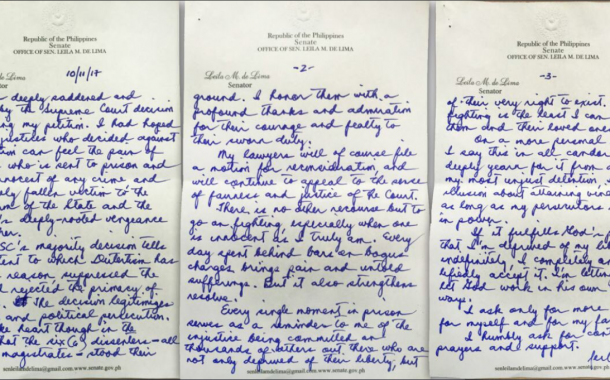 Republic of the Philippines
Senate
OFFICE OF SEN. LEILA M. DE LIMA
M. de Lima
Senator
10/11/17
deeply saddened and
by the Supreme Court decision
my petition. I had hoped
justices who decided against
can feel the pain of
who is sent to prison and
innocent of any crime and
fallen victim to the
of the State and the
deeply-rooted vengeance
SC's majority decision tells
extent to which Dutertism has
reason, suppressed the
rejected the primacy of
The decision legitimizes
and political persecution.
heart though in the
that the six (6) dissenters - all
magistrates - stood their
Republic of the Philippines
Senate
OFFICE OF SEN. LEILA M. DE LIMA
Leila M. de Lima
Senator
-2-
ground. I honor them with a
profound thanks and admiration
for their courage and fealty to
their sworn duty.
My lawyers will of course file
a motion for reconsideration and
will continue to appeal to the sense
of fairness and justice of the Court.
There is no other recourse but to
go on fighting, especially when one
is innocent as I truly am. Every
day spent behind bars on bogus
charges brings pain and untold
sufferings. But it also strengthens
resolve.
Every single moment in prison
serves as a reminder to me of the
injustice being committed on
thousands of others out there who are
not only deprived of their liberty, but
senleilamdelima@gmail.com www.senate.gov.ph
Republic of the Philippines
Senate
OFFICE OF SEN. LEILA M. DE LIMA
Leila M. de Lima
Senator
-3-
of their very right to exist.
fighting is the least I can
them and their loved one
On a more personal
I say this in all candor
deeply yearn for it from
my most unjust detention,
illusion about attaining
as long as my persecutors
in power.
If it fulfills God's
that I'm deprived of my lib
indefinitely, I completely
accept it. I'm letting
let God work in his own
ways.
I ask only for more
for myself and for my fa
I humbly ask for con
prayers and support.
senleilamdelima@gmail.com www.senate.gov.ph